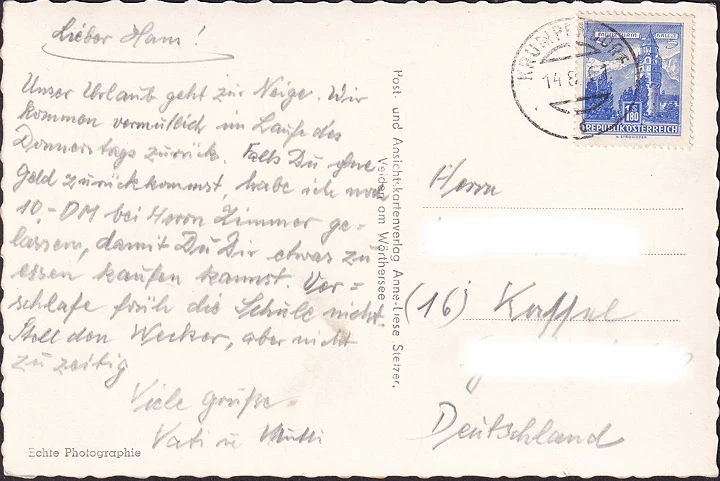 Lieber Hans!
Unser Urlaub geht zur Neige. Wir
kommen vermutlich im Laufe des
Donnerstags zurück. Falls Du ohne
Geld zurückkommst, habe ich noch
10,- DM bei Herrn Zimmer ge=
lassen, damit Du Dir etwas zu
essen kaufen kannst. Ver=
schlafe früh die Schule nicht.
Stell den Wecker, aber nicht
zu zeitig
Viele Grüße
Vati u Mutti
Echte Photographie
Post- und Ansichtskartenverlag Anne-Liese Stelzer,
Velden am Wörthersee
KRUMPENDORF
14.8
1.80
REPUBLIK ÖSTERREICH
Herrn
(16) Kassel
Deutschland